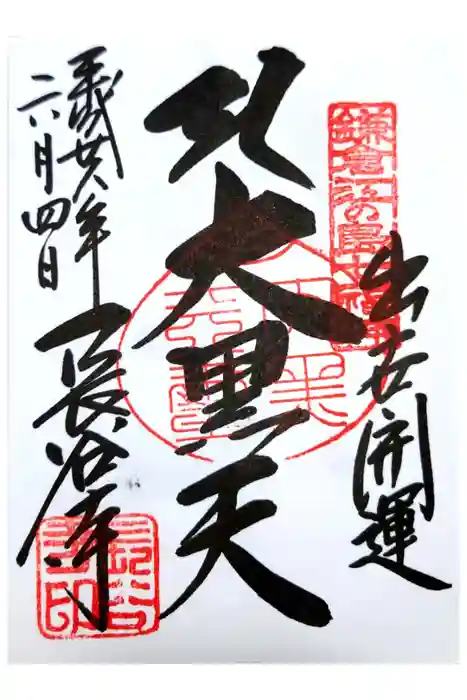 鎌倉江の島七福神
出世開運
大黒天
平成廿八年
六月四日
長谷寺
長谷寺印